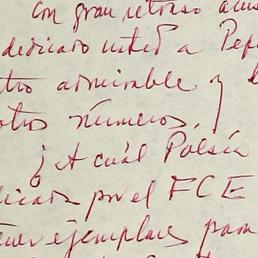 con gran retraso acus
dedicado usted a Pepe
tro admirable y l
otros números,
¿A cuál Poesía
licada por el FCE
ejemplares para